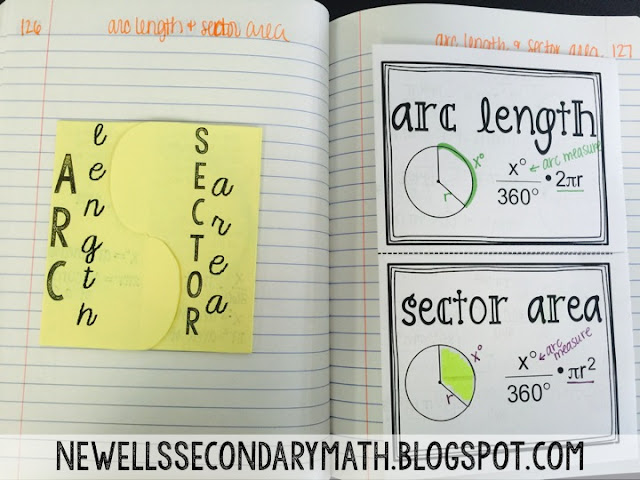 126
arc length & sector area
ARC
length
SECTOR
area
arc length & sector area 127
arc length
x°
r
x°
360°
• 2πr
arc measure
sector area
x°
r
x°
360°
• πr²
arc measure
NEWELLSSECONDARYMATH.BLOGSPOT.COM